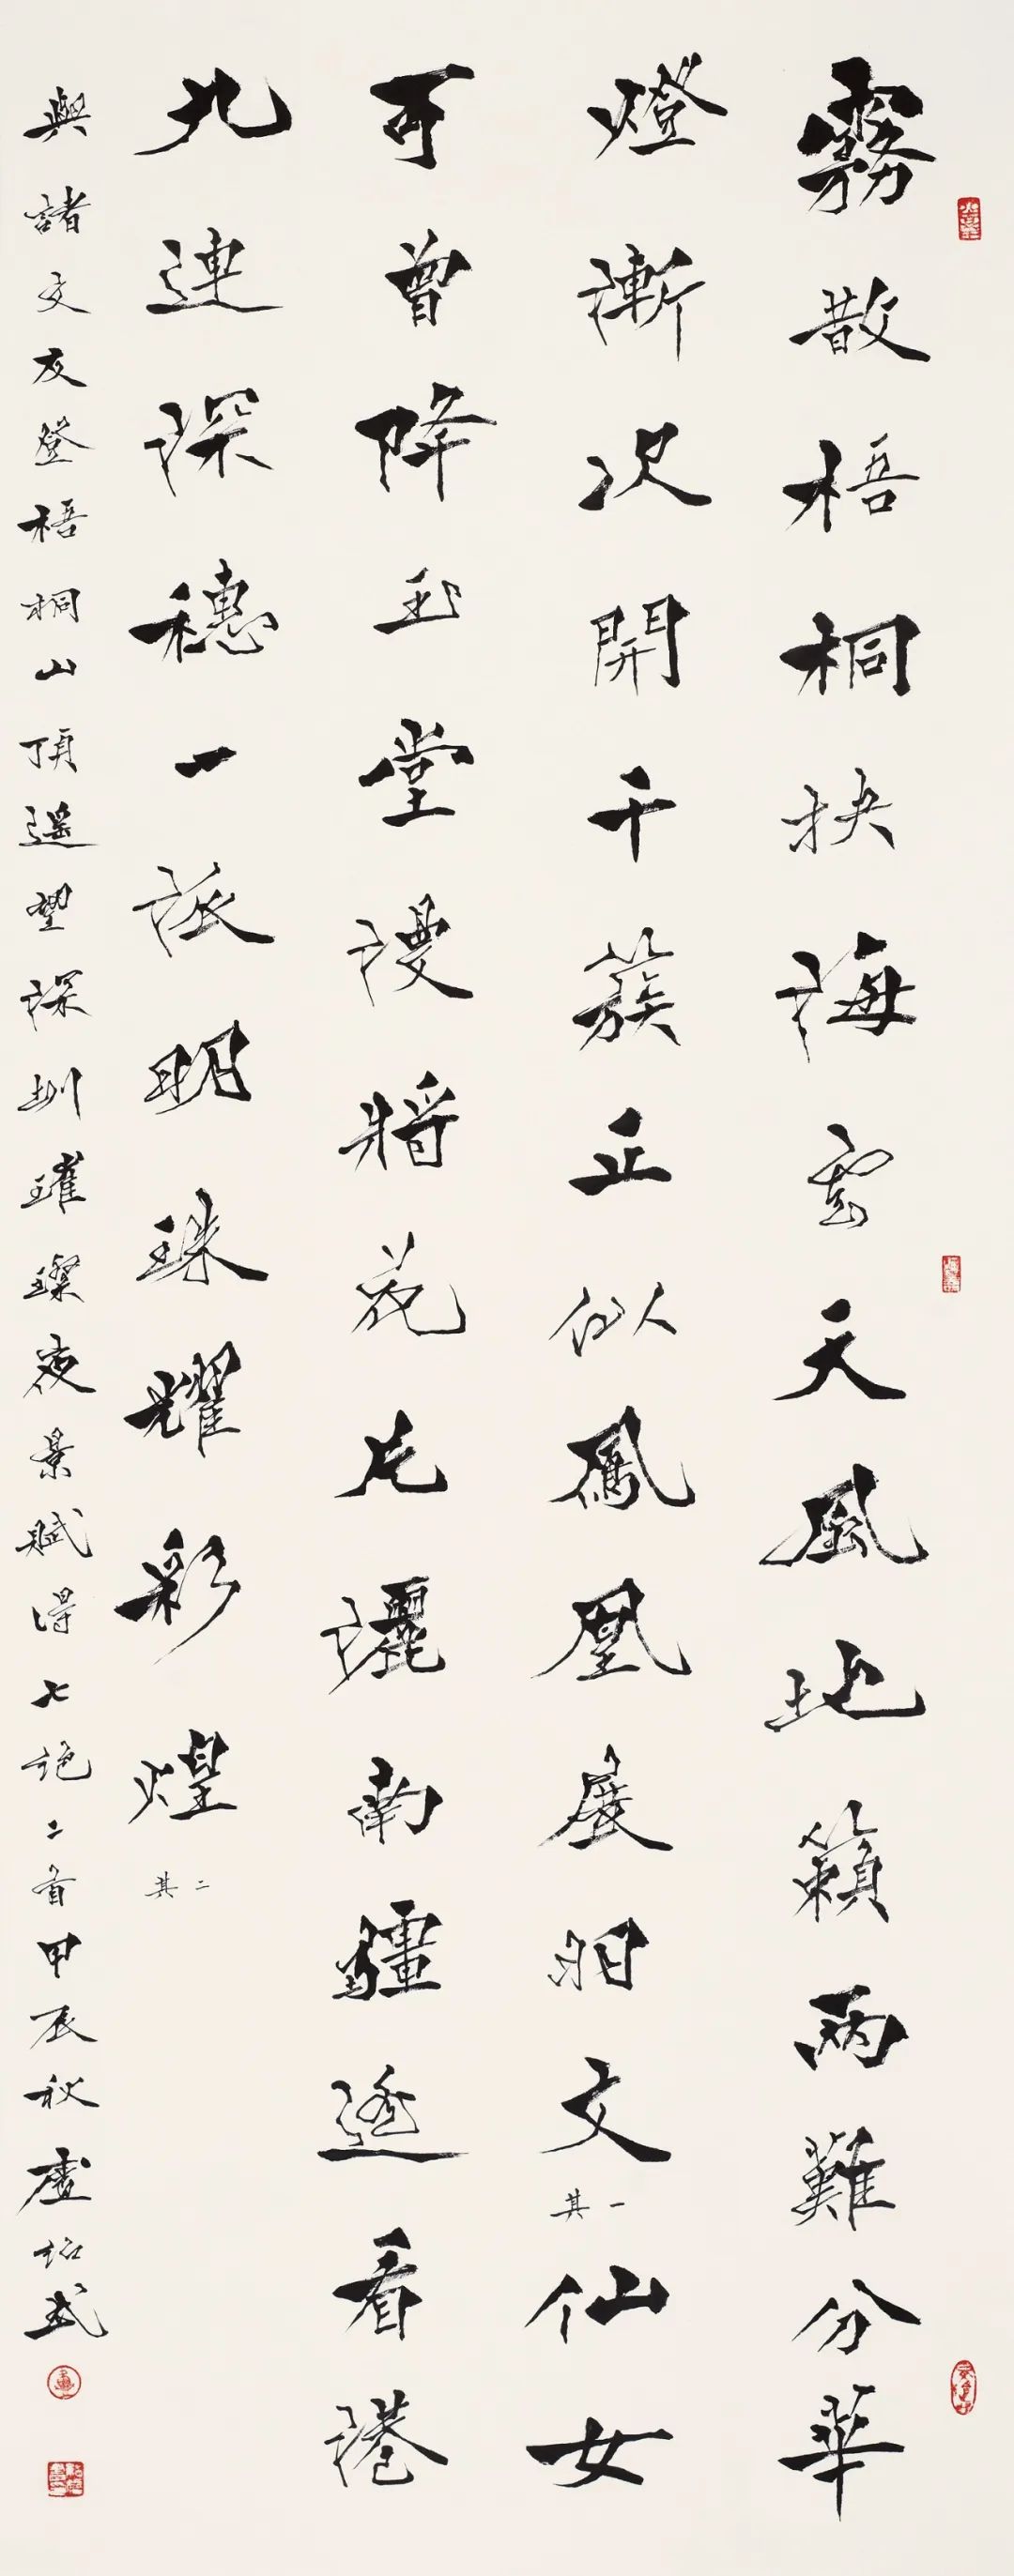 霧散梧桐抉海雲天風地籟兩難分華
燈漸次開千簇正似鳳凰展羽文其一仙女
可曾降玉堂漫將花片灑南疆遙看港
九連深穗一派明珠耀彩煌其二
與諸文友登梧桐山頂遙望深圳璀璨夜景賦得七絕二首甲辰秋盧紹武